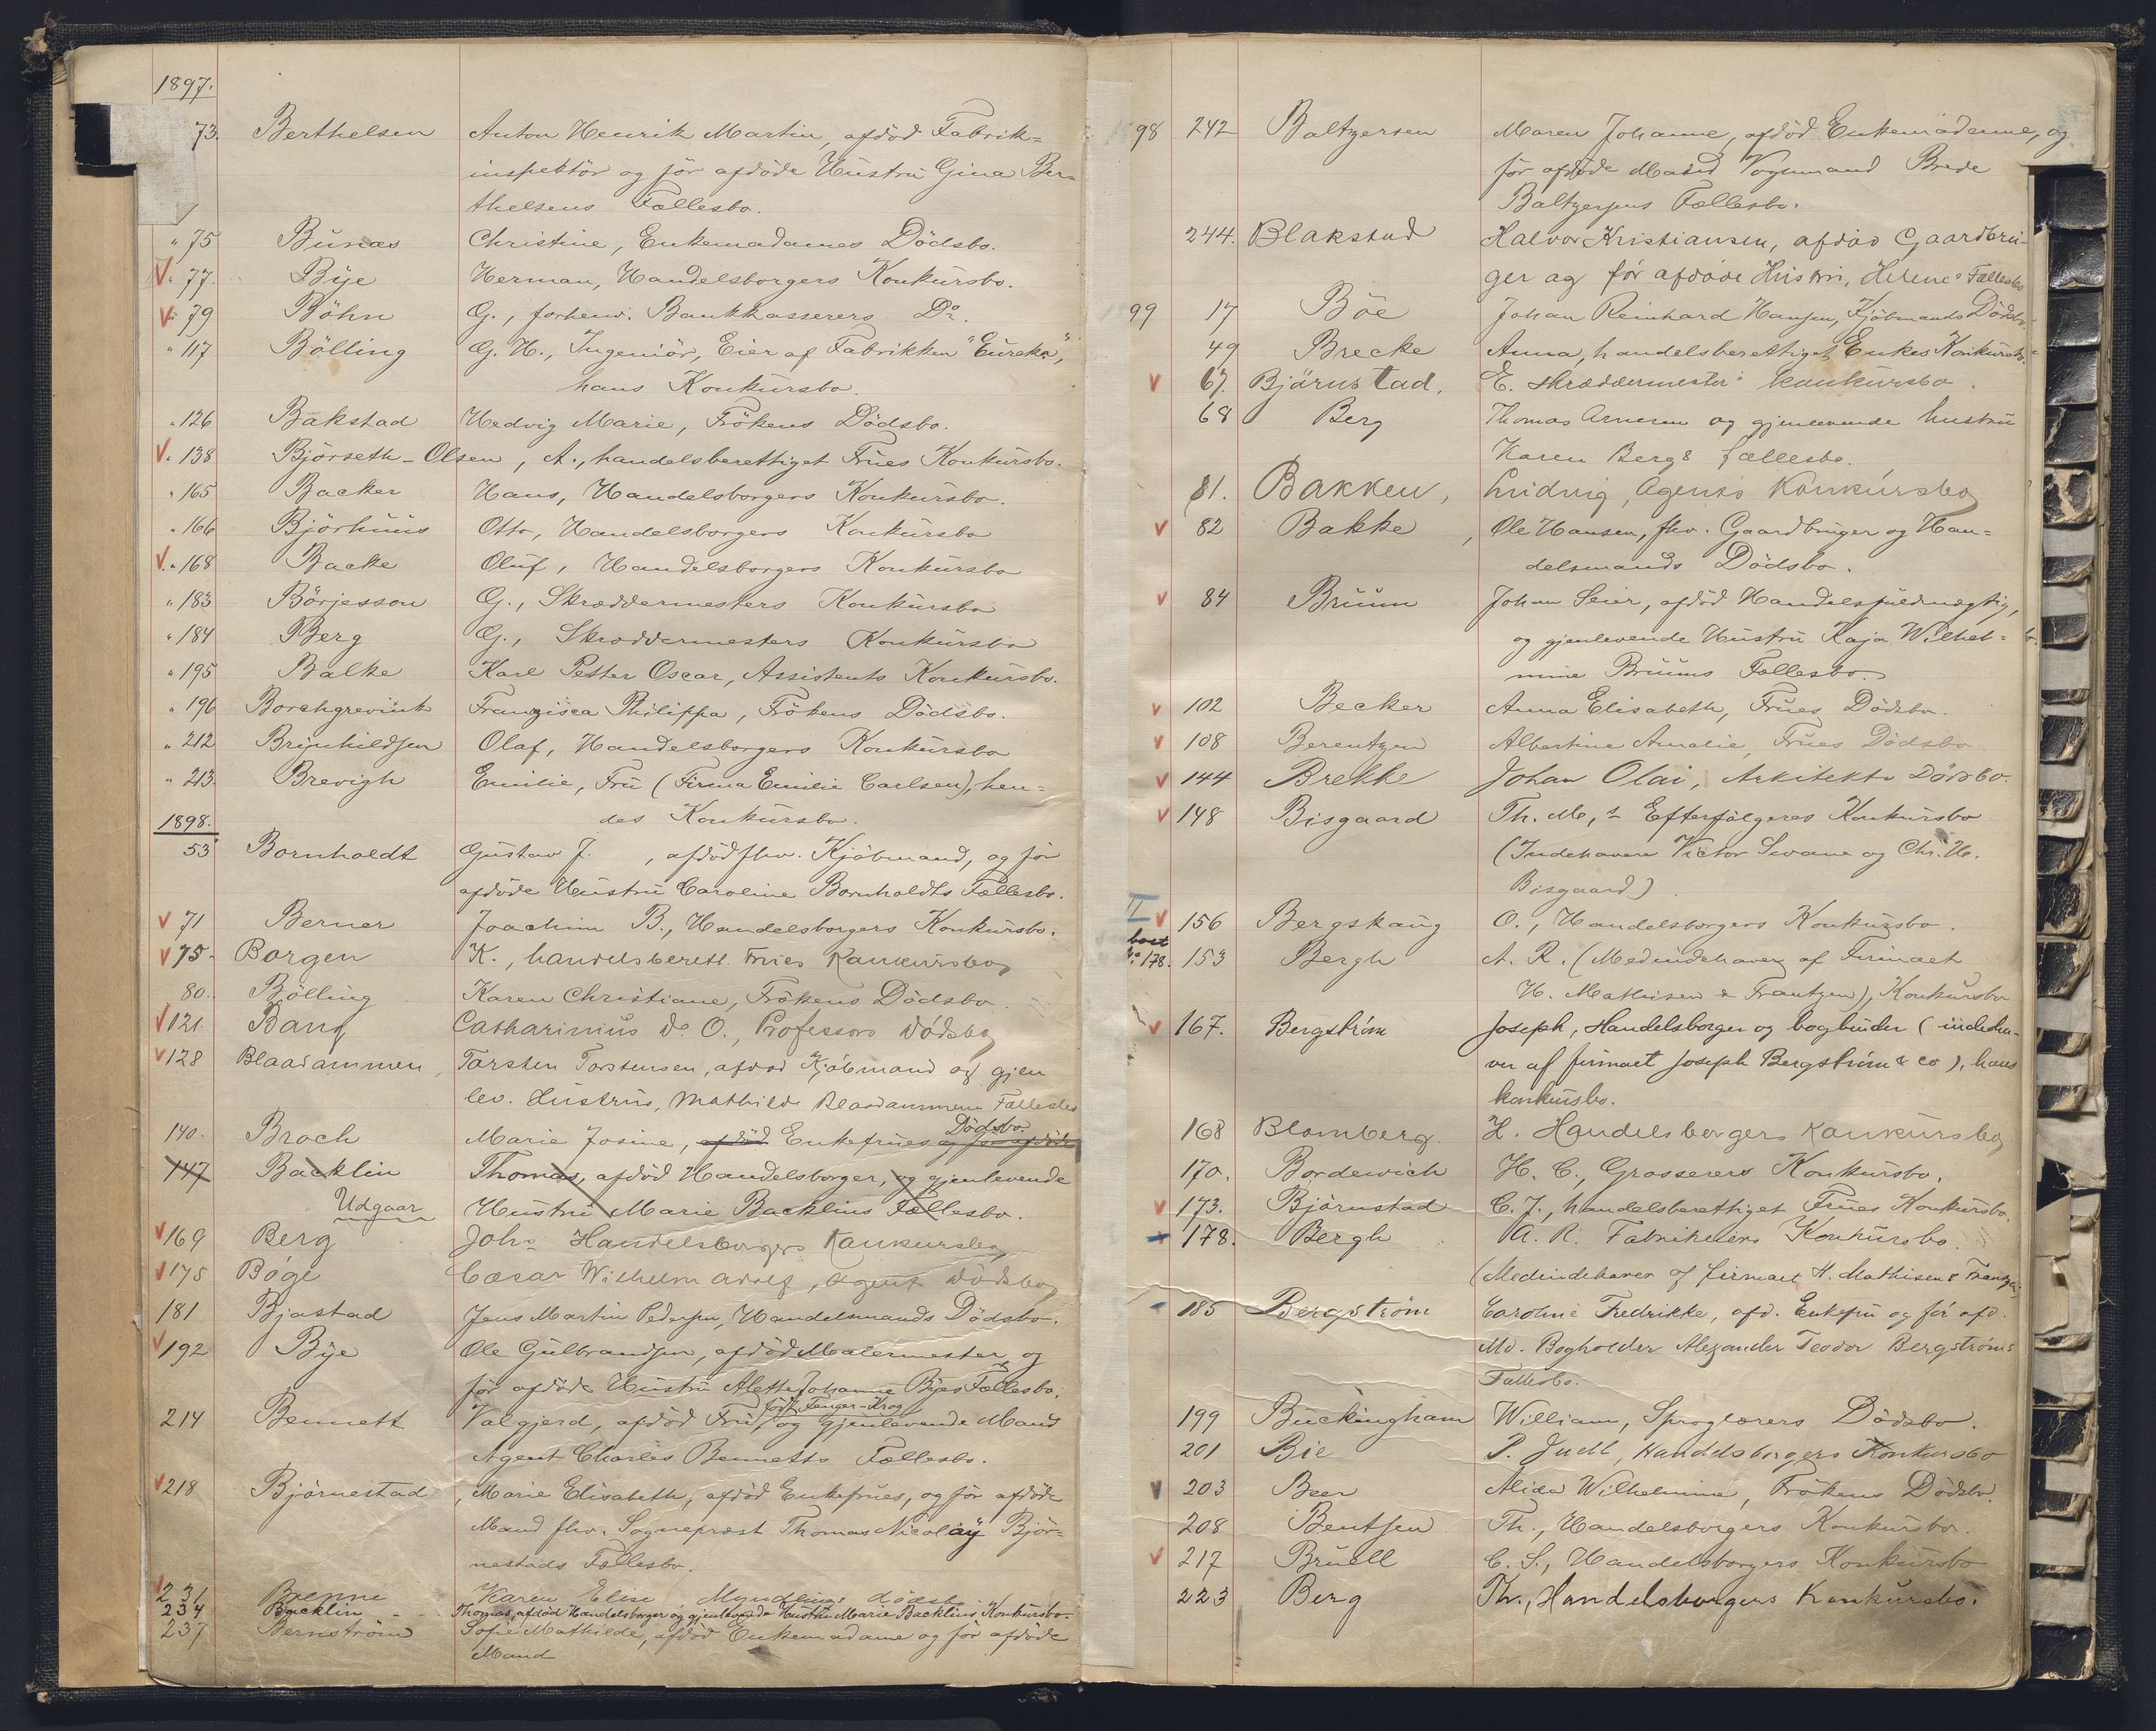 1897.
73. Berthelsen Anton Henrik Martin, afdöd Fabrik=
inspektör og för afdöde Hustru Gina Ber=
thelsens Fællesbo.
" 75 Bunæs Christine, Enkemadames Dödsbo.
V " 77. Bye Herman, Handelsborgers Konkursbo.
V " 79 Böhn G., forhenv. Bankkasserers Do.
" 117 Bölling G. H., Ingeniör, Eier af Fabrikken "Eureka",
hans Konkursbo.
" 126 Bakstad Hedvig Marie, Frökens Dödsbo.
V. " 138 Björseth-Olsen, A., handelsberettiget Frues Konkursbo.
" 165 Backer Hans, Handelsborgers Konkursbo.
" 166 Björhuus Otto, Handelsborgers Konkursbo
V. " 168 Backe Oluf, Handelsborgers Konkursbo
" 183 Börjesson G., Skræddermesters Konkursbo
" 184 Berg G., Skræddermesters Konkursbo
" 195 Balke Karl Petter Oscar, Assistents Konkursbo.
" 196 Borchgrevink Franzisca Philippa, Frökens Dödsbo.
" 212 Brynhildsen Olaf, Handelsborgers Konkursbo
" 213. Brevigh Emilie, Fru (Firma Emilie Carlsen), hen=
des Konkursbo.
1898.
53 Bornholdt Gustav J. , afdöd fhv. Kjöbmand, og för
afdöde Hustru Caroline Bornholdts Fællesbo.
V 71 Berner Joachim B., Handelsborgers Konkursbo.
V 75. Borgen K., handelsberett. Frues Konkursbo
80. Bölling Karen Christiane, Frökens Dödsbo.
V 121. Bang Catharinus do O., Professors Dödsbo
V 128 Blaadammen, Torsten Torstensen, afdöd Kjöbmand og gjen
lev. Hustrus, Mathilde Blaadammens Fællesbo
Dödsbo.
140. Broch Marie Josine, afdöd Enkefrues og för afdöde
147 Backlin Thomas, afdöd Handelsborger, og gjenlevende
Udgaar Hustru Marie Backlins Fællesbo.
V 169 Berg Johs Handelsborgers Konkursbo
V 175 Böge Cæsar Wilhelm Adolf, Agent Dödsbo
181 Bjastad Jens Martin Pedersen, Handelsmands Dödsbo.
V 192 Bye Ole Gulbrandsen, afdöd Malermester og
för afdöde Hustru Alette Johanne Byes Fællesbo.
född Fenger-Krog
214 Bennett Valgjerd, afdöd Fru, og gjenlevende Mand
Agent Charles Bennetts Fællesbo.
V 218 Björnestad, Marie Elisabeth, afdöd Enkefrues, og för afdöde
Mand fhv. Sognepræst Thomas Nicolay Björ=
nestads Fællesbo.
V 231 Brenne Karen Elise Myndlings dödsbo
234 Backlin Thomas, afdöd Handelsborger og gjenlevende Hustru Marie Backlins Konkursbo.
237 Bernström Sofie Mathilde, afdöd Enkemadame og för afdöde
Mand
98 242 Baltzersen Maren Johanne, afdöd Enkemadame, og
för afdöde Mand Vognmand Brede
Baltzersens Fællesbo.
244. Blakstad Halvor Kristiansen, afdöd Gaardbru-
ger og för afdöde Hustru, Helenes Fællesbo
99 17 Böe Johan Reinhard Hansen, Kjöbmands Dödsbo.
49 Brecke Anna, handelsberettiget Enkes Konkursbo.
V 67. Björnstad, E. skræddermesters konkursbo.
68 Berg Thomas Arnesen og gjenlevende hustru
Karen Bergs fællesbo.
81. Bakken, Ludvig, Agents Konkursbo
V 82 Bakke, Ole Hansen, fhv. Gaardbruger og Han=
delsmands Dödsbo.
V 84 Bruun Johan Seier, afdöd Handelsfuldmægtig,
og gjenlevende Hustru Kaja Wilhel=
mine Bruuns Fællesbo.
V 102 Becker Anna Elisabeth, Frues Dödsbo.
V 108 Berentzen Albertine Amalie, Frues Dödsbo
V 144 Brekke Johan Olai, Arkitekts Dödsbo.
V 148 Bisgaard Th. M,s Efterfölgeres Konkursbo
(Indehavere Victor Swane og Chr. H.
Bisgaard).
II V 156 Bergskaug O., Handelsborgers Konkursbo.
boet
No 178. 153 Bergh A. R. (Medindehaver af Firmaet
H. Mathisen & Frantzen), Konkursbo
V 167. Bergström Joseph, Handelsborger og bogbinder (indeha-
ver af firmaet Joseph Bergström & Co), hans
konkursbo.
168 Blomberg. H. Handelsborgers Konkursbo
170. Bordewich H. C., Grosserers Konkursbo.
V 173. Björnstad C. J., handelsberettiget Frues Konkursbo.
178. Bergh A. R. Fabrikeiers Konkursbo.
(Medindehaver af firmaet H. Mathisen & Frantzen
185 Bergström Caroline Fredrikke, afd. Enkefru og för afd.
Md. Bogholder Alexander Teodor Bergströms
Fællesbo.
199 Buckingham William, Sproglærers Dödsbo.
201 Bie P. Juell, Handelsborgers Konkursbo
V 203 Beer Alida Wilhelmine, Frökens Dödsbo.
208 Bentsen Th., Handelsborgers Konkursbo.
V 217 Bruell C. S., Handelsborgers Konkursbo
223 Berg Th., Handelsborgers Konkursbo.